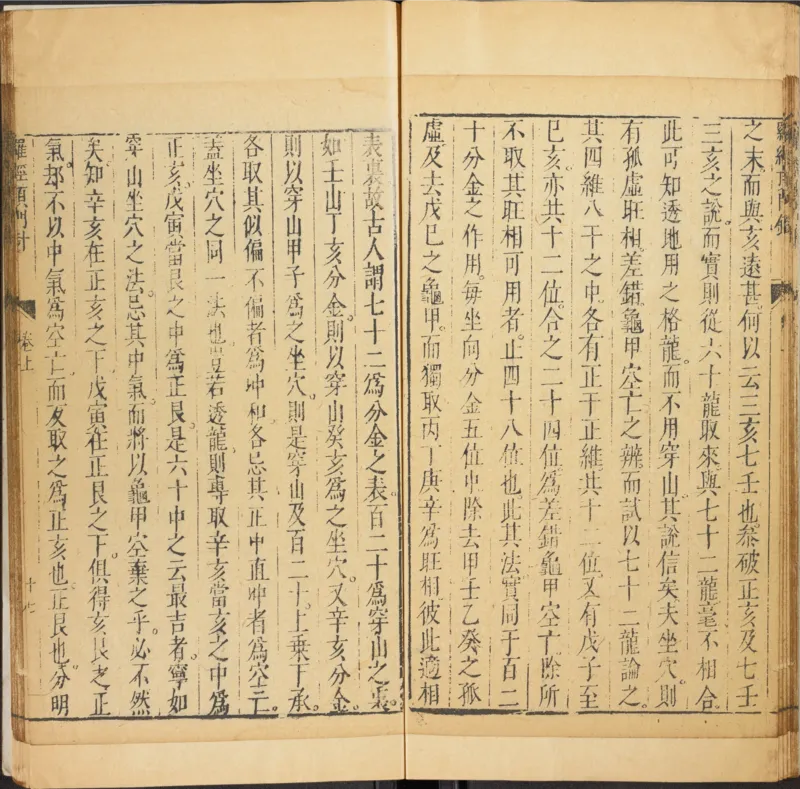 之末。而與亥遠甚。何以云三亥七壬也。叅破正亥及七壬
三亥之說。而實則從六十龍取來。與七十二龍毫不相合。
此可知透地用之格龍。而不用穿山。其說信矣。夫坐穴。則
有孤虛旺相。差錯。龜甲空亡之辨。而試以七十二龍論之。
其四維八干之中。各有正干正維。共十二位。又有戊子至
巳亥。亦共十二位。合之二十四位。爲差錯龜甲空亡。除所
不取。其旺相可用者。止四十八位也。此其法實同于百二
十分金之作用。每坐向分金五位中。除去甲壬乙癸之孤
虛。及去戊巳之龜甲。而獨取丙丁庚辛爲旺相。彼此適相
表裏。故古人謂七十二爲分金之表。百二十爲穿山之裏。
如壬山丁亥分金。則以穿山癸亥爲之坐穴。又辛亥分金。
則以穿山甲子爲之坐穴。則是穿山及百二十。上乘下承。
各取其似偏不偏者爲冲和。各忌其正中直冲者爲空亡。
蓋坐穴之同一法也。豈若透龍。則專取辛亥當亥之中。爲
正亥。戊寅當艮之中。爲正艮。是六十中之云最吉者。寧如
穿山坐穴之法。忌其中氣。而將以龜甲空棄之乎。必不然
矣。知辛亥在正亥之下。戊寅在正艮之下。俱得亥艮之正
氣。却不以中氣爲空亡。而反取之爲正亥也。正艮也。分明
羅經頂門針
卷上
十七